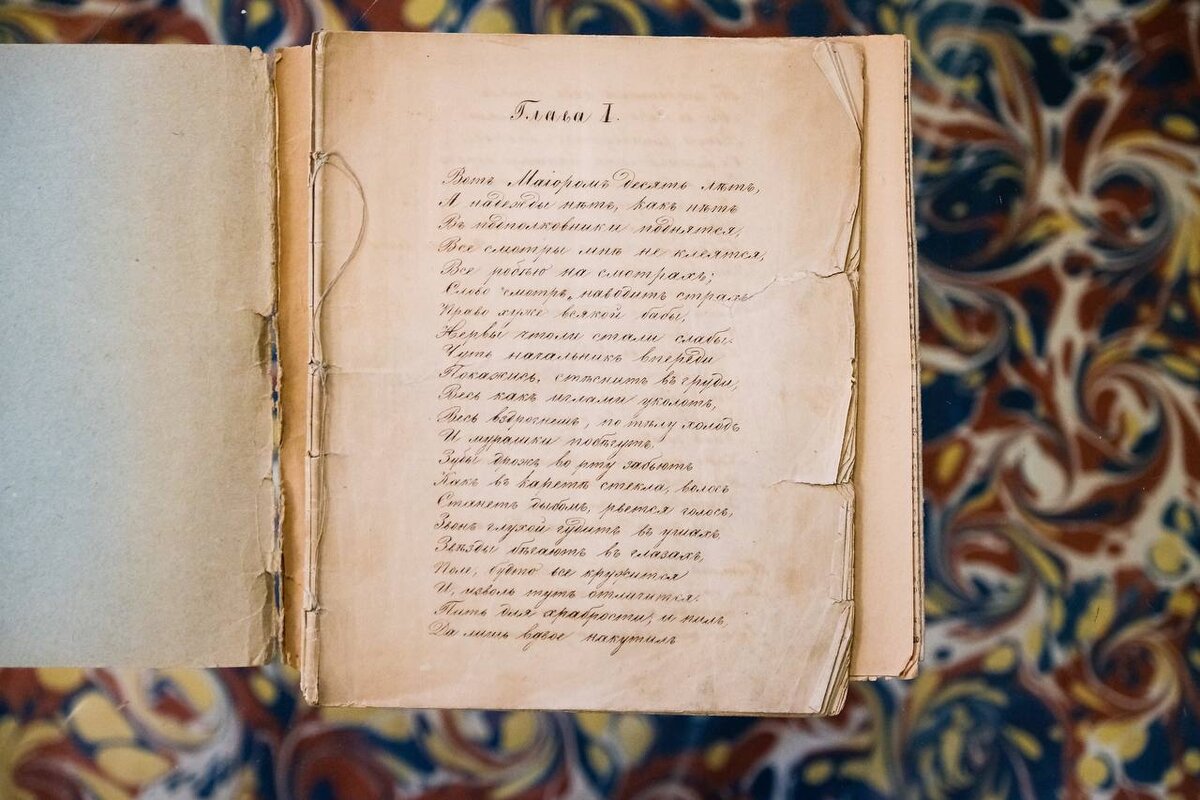 Глава I.
Вотъ Маіоромъ десять лѣтъ,
А надежды нѣтъ, какъ нѣтъ
Въ подполковники поднятся,
Все смотры мнѣ не клеятся,
Все робѣю на смотрахъ;
Слово "смотръ" наводитъ страхъ
Право хуже всякой бабы,
Нервы чтоли стали слабы.
Чуть начальникъ впереди
Покажись, стѣснитъ въ груди,
Весь какъ иглами уколотъ,
Весь вздрогнешь, по тѣлу холодъ
И мурашки побѣгутъ.
Зубы дрожь во рту забьютъ
Какъ въ каретѣ стекла, волосъ
Станетъ дыбомъ, рвется голосъ,
Звонъ глухой гудитъ въ ушахъ
Звѣзды бѣгаютъ въ глазахъ,
Поле, будто все кружится
И, изволь тутъ отличится.
Пить для храбрости, и пилъ,
Да лишь вдвое накутилъ